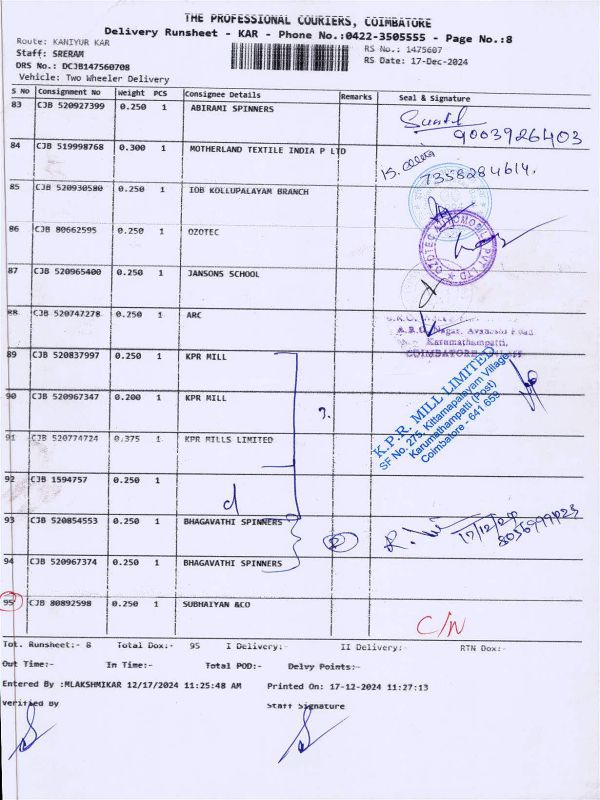 THE PROFESSIONAL COURIERS, COIMBATORE
Delivery Runsheet - KAR - Phone No.:0422-3505555 - Page No.:8
Route: KANIYUR KAR
RS No.: 1475607
Staff: SRERAM
RS Date: 17-Dec-2024
DRS No.: DCJB147560708
Vehicle: Two Wheeler Delivery
S No Consignment No Weight PCS Consignee Details Remarks Seal & Signature
83 CJB 520927399 0.250 1 ABIRAMI SPINNERS
9003926403
84 CJB 519998768 0.300 1 MOTHERLAND TEXTILE INDIA P LTD
7358284614.
85 CJB 520930580 0.250 1 IOB KOLLUPALAYAM BRANCH
86 CJB 80662595 0.250 1 OZOTEC
OZOTEC AUTOMOBILE PVT LTD
87 CJB 520965400 0.250 1 JANSONS SCHOOL
88 CJB 520747278 0.250 1 ARC
Karumathampatti,
COIMBATORE
89 CJB 520837997 0.250 1 KPR MILL
90 CJB 520967347 0.200 1 KPR MILL
3.
K.P.R. MILL LIMITED
SF No. 275, Kittampalayam Village
Karumathampatti (Post)
Coimbatore - 641 659
91 CJB 520774724 0.375 1 KPR MILLS LIMITED
92 CJB 1594757 0.250 1
d
93 CJB 520854553 0.250 1 BHAGAVATHI SPINNERS
2
17/12/24
94 CJB 520967374 0.250 1 BHAGAVATHI SPINNERS
95 CJB 80892598 0.250 1 SUBHAIYAN &CO
C/N
Tot. Runsheet:- 8 Total Dox:- 95 I Delivery:- II Delivery:- RTN Dox:-
Out Time:- In Time:- Total POD:- Delvy Points:-
Entered By :MLAKSHMIKAR 12/17/2024 11:25:48 AM Printed On: 17-12-2024 11:27:13
Verified By Staff Signature